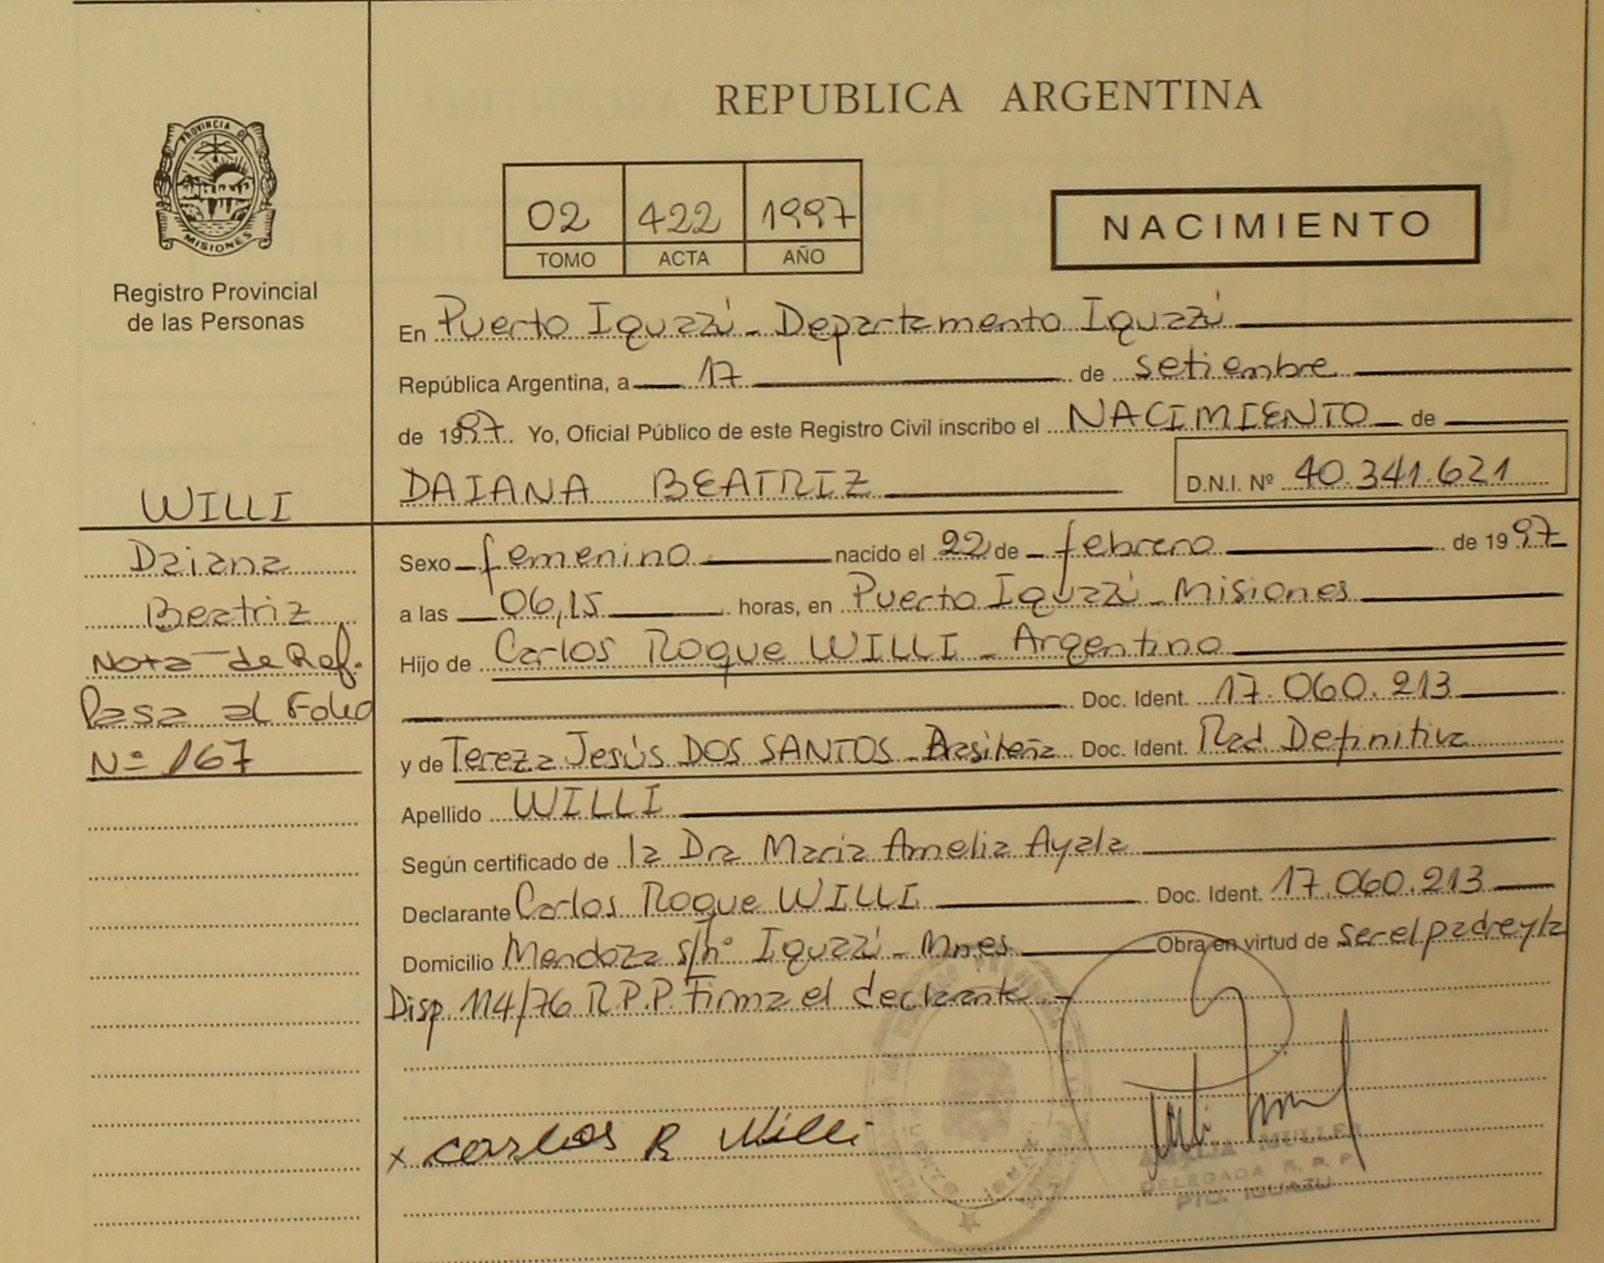 REPUBLICA ARGENTINA
PROVINCIA DE
MISIONES
Registro Provincial
de las Personas
02 422 1997
TOMO ACTA AÑO
NACIMIENTO
En Puerto Iguazú - Departamento Iguazú
República Argentina, a 17 de setiembre
de 1997. Yo, Oficial Público de este Registro Civil inscribo el NACIMIENTO de
DAIANA BEATRIZ D.N.I. Nº 40.341.621
WILLI
Daiana
Beatriz
Nota de Ref.
Pasa al Folio
Nº 167
Sexo femenino nacido el 22 de febrero de 1997
a las 06,15 horas, en Puerto Iguazú - Misiones
Hijo de Carlos Roque WILLI - Argentino
Doc. Ident. 17.060.213
y de Tereza Jesús DOS SANTOS - Brasileña Doc. Ident. Rad Definitiva
Apellido WILLI
Según certificado de la Dra Maria Amelia Ayala
Declarante Carlos Roque WILLI Doc. Ident. 17.060.213
Domicilio Mendoza s/nº Iguazú - Mnes Obra en virtud de ser el padre y la
Disp. 114/76 R.P.P. Firma el declarante.-
x Carlos R Willi
MULLER
DELEGADA R. P. P.
PTO. IGUAZU